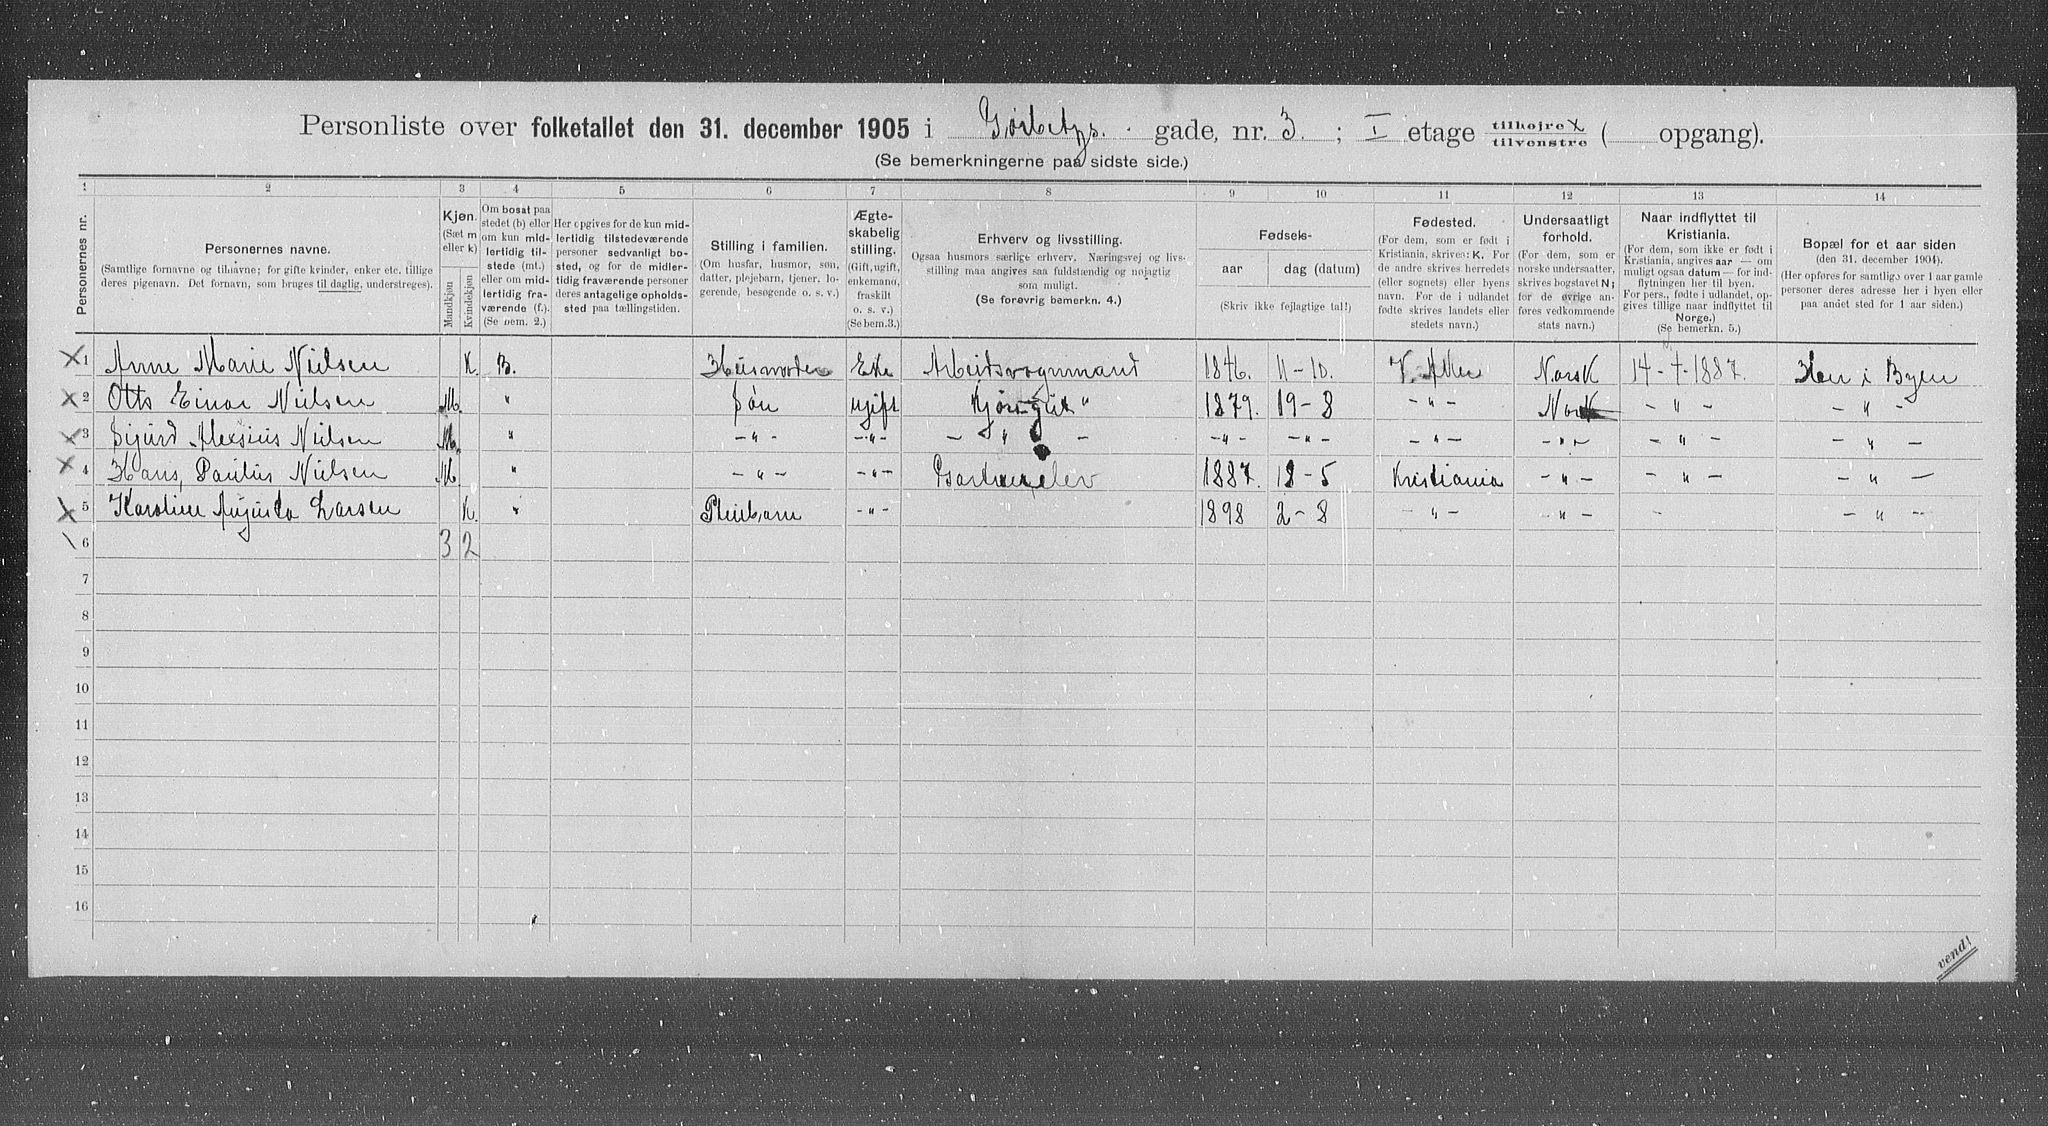 Personliste over folketallet den 31. december 1905 i Gørbetzs. gade, nr. 3. ; I etage tilhøjre X / tilvenstre ( opgang).
(Se bemerkningerne paa sidste side.)
1 2 3 4 5 6 7 8 9 10 11 12 13 14
Personernes nr.
Personernes navne.
(Samtlige fornavne og tilnavne; for gifte kvinder, enker etc. tillige deres pigenavn. Det fornavn, som bruges til daglig, understreges).
Kjøn. (Sæt m eller k) Mandkjøn Kvindekjøn
Om bosat paa stedet (b) eller om kun midlertidig tilstede (mt.) eller om midlertidig fraværende (f.). (Se bem. 2.)
Her opgives for de kun midlertidig tilstedeværende personer sedvanligt bosted, og for de midlertidig fraværende personer deres antagelige opholdssted paa tællingstiden.
Stilling i familien.
(Om husfar, husmor, søn, datter, plejebarn, tjener, logerende, besøgende o. s. v.)
Ægteskabelig stilling.
(Gift, ugift, enkemand, fraskilt o. s. v.) (Se bem. 3.)
Erhverv og livsstilling.
Ogsaa husmors særlige erhverv. Næringsvej og livsstilling maa angives saa fuldstændig og nøjagtig som muligt.
(Se forøvrig bemerkn. 4.)
Fødsels-
aar dag (datum)
(Skriv ikke fejlagtige tal!)
Fødested.
(For dem, som er født i Kristiania, skrives: K. For de andre skrives herredets (eller sognets) eller byens navn. For de i udlandet fødte skrives landets eller stedets navn.)
Undersaatligt forhold.
(For dem, som er norske undersaatter, skrives bogstavet N; for de øvrige anføres vedkommende stats navn.)
Naar indflyttet til Kristiania.
(For dem, som ikke er født i Kristiania, angives aar — om muligt ogsaa datum — for indflytningen her til byen. For pers., fødte i udlandet, opgives tillige naar indflyttet til Norge.)
(Se bemerkn. 5.)
Bopæl for et aar siden
(den 31. december 1904).
(Her opføres for samtlige over 1 aar gamle personer deres adresse her i byen eller paa andet sted for 1 aar siden.)
X 1 Anne Marie Nielsen K. B. Husmoder Eke Arbeitsvognmand 1846. 11-10. V. Aker Norsk 14-4-1887. Her i Byen
X 2 Otto Einar Nielsen M. " Søn ugift " 1879. 19-8 - " - Norsk - " - - " -
X 3 Sigurd Alexsius Nielsen M. " - " - - " - - " - - " - - " - - " - - " - - " - - " -
X 4 Hans Paulus Nielsen M. " - " - - " - 1887. 18-5 Kristiania - " - - " - - " -
X 5 Karoline Augusta Larsen K. " Pleiebarn - " - 1898 2-8 - " - - " - - - " -
\ 6 3 2
7
8
9
10
11
12
13
14
15
16
vend!